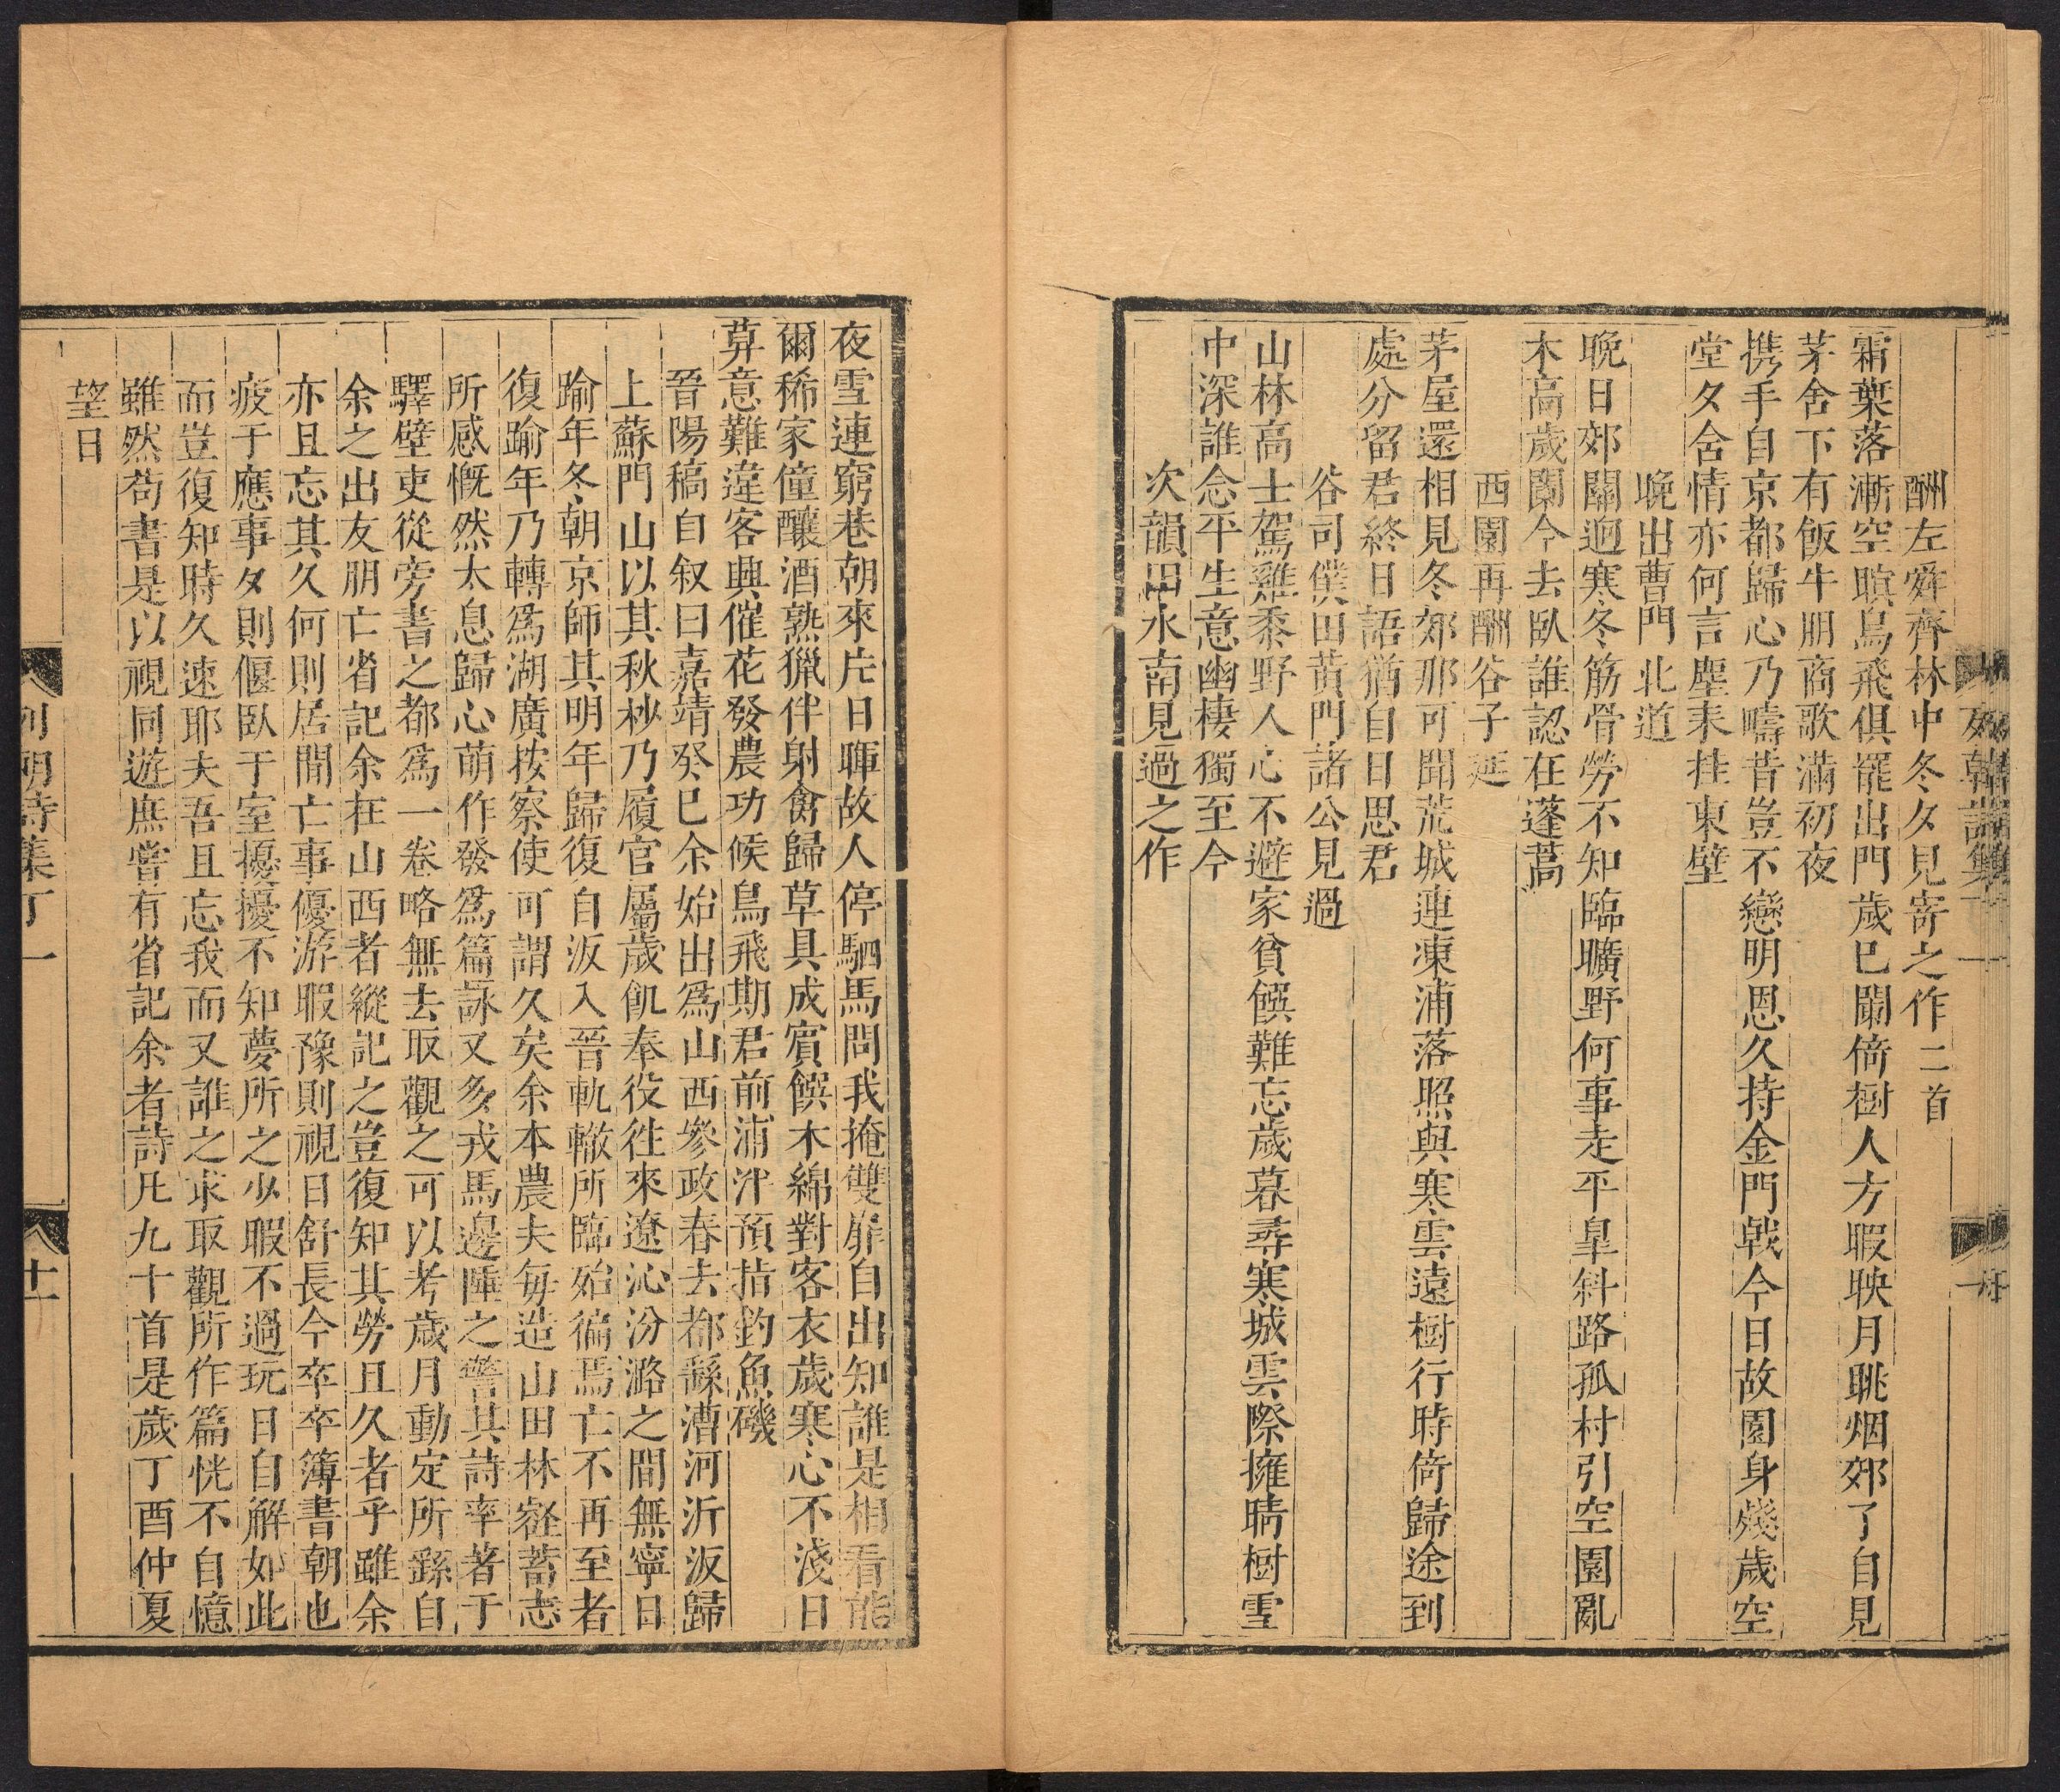 酬左舜齊林中冬夕見寄之作二首
霜葉落漸空暝鳥飛俱罷出門歲已闌倚樹人方暇映月眺烟郊了自見
茅舍下有飯牛朋商歌滿初夜
携手自京都歸心乃疇昔豈不戀明恩久持金門戟今日故園身殘歲空
堂夕舍情亦何言塵耒挂東壁
晚出曹門北道
晚日郊關逈寒冬筋骨勞不知臨曠野何事走平皐斜路孤村引空園亂
木高歲闌今去臥誰認在蓬蒿
西園再酬谷子延
茅屋還相見冬郊那可聞荒城連凍浦落照與寒雲遠樹行時倚歸途到
處分留君終日語猶自日思君
谷司僕田黃門諸公見過
山林高士駕雞黍野人心不避家貧饌難忘歲暮尋寒城雲際擁晴樹雪
中深誰念平生意幽棲獨至今
次韻田永南見過之作
夜雪連窮巷朝來片日暉故人停駟馬問我掩雙扉自出知誰是相看能
爾稀家僮釀酒熟獵伴射禽歸草具成賓饌木綿對客衣歲寒心不淺日
莫意難違客興催花發農功候鳥飛期君前浦泮預拮釣魚磯
晉陽稿自叙曰嘉靖癸巳余始出爲山西叅政春去都繇漕河沂汳歸
上蘇門山以其秋杪乃履官屬歲飢奉役徃來遼沁汾潞之間無寧日
踰年冬朝京師其明年歸復自汳入晉軌轍所臨殆徧焉亡不再至者
復踰年乃轉爲湖廣按察使可謂久矣余本農夫每造山田林壑蓄志
所感慨然太息歸心萌作發爲篇詠又多戎馬邊陲之警其詩率著于
驛壁吏從旁書之都爲一卷略無去取觀之可以考歲月動定所繇自
余之出友朋亡省記余在山西者縱記之豈復知其勞且久者乎雖余
亦且忘其久何則居閒亡事優游暇豫則視日舒長今卒卒簿書朝也
疲于應事夕則偃臥于室擾擾不知夢所之少暇不過玩日自解如此
而豈復知時久速耶夫吾且忘我而又誰之求取觀所作篇恍不自憶
雖然苟書是以視同遊庶嘗有省記余者詩凡九十首是歲丁酉仲夏
望日
列朝詩集丁一
十一